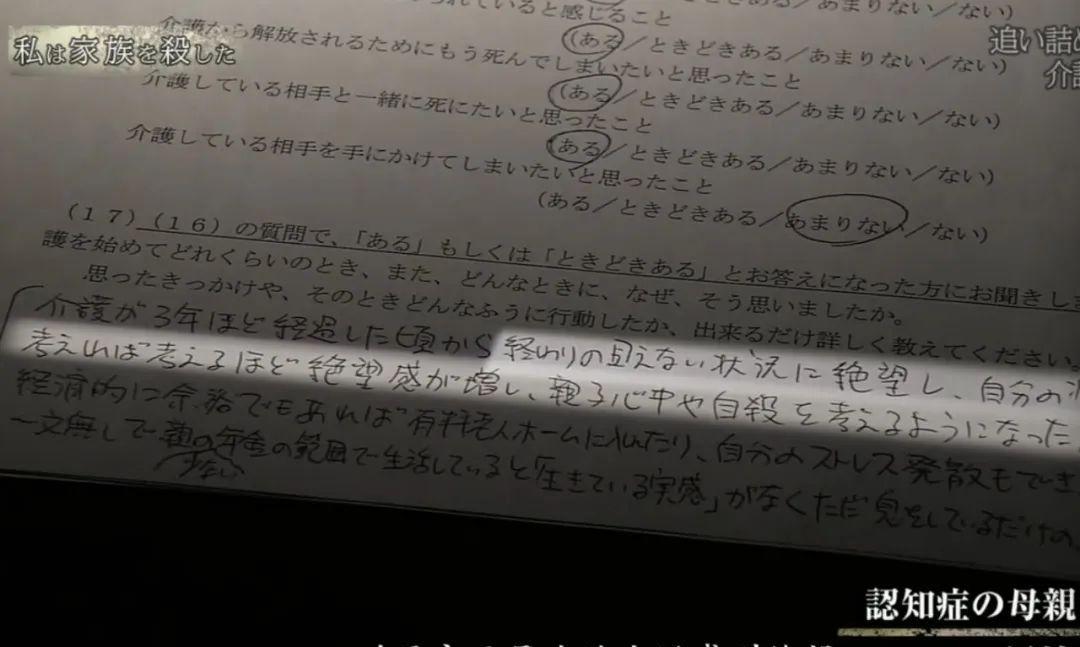 私は家族を殺した
追い詰め
られていると感じること
介護から解放されるためにもう死んでしまいたいと思ったこと
(ある/ときどきある/あまりない/ない)
介護している相手と一緒に死にたいと思ったこと
(ある/ときどきある/あまりない/ない)
介護している相手を手にかけてしまいたいと思ったこと
(ある/ときどきある/あまりない/ない)
(ある/ときどきある/あまりない/ない)
(17)(16)の質問で、「ある」もしくは「ときどきある」とお答えになった方にお聞きしま
護を始めてどれくらいのとき、また、どんなときに、なぜ、そう思いましたか。
思ったきっかけや、そのときどんなふうに行動したか、出来るだけ詳しく教えてください。
介護が3年ほど経過した頃から終わりの見えない状況に絶望し、自分の
考えれば考えるほど絶望感が増し、親子心中や自殺を考えるようになった
経済的に余裕でもあれば有料老人ホームに入れたり、自分のストレス発散もでき
一文無しで親の少ない年金の範囲で生活していると「生きている実感」がなくただ息をしているだけの
認知症の母親